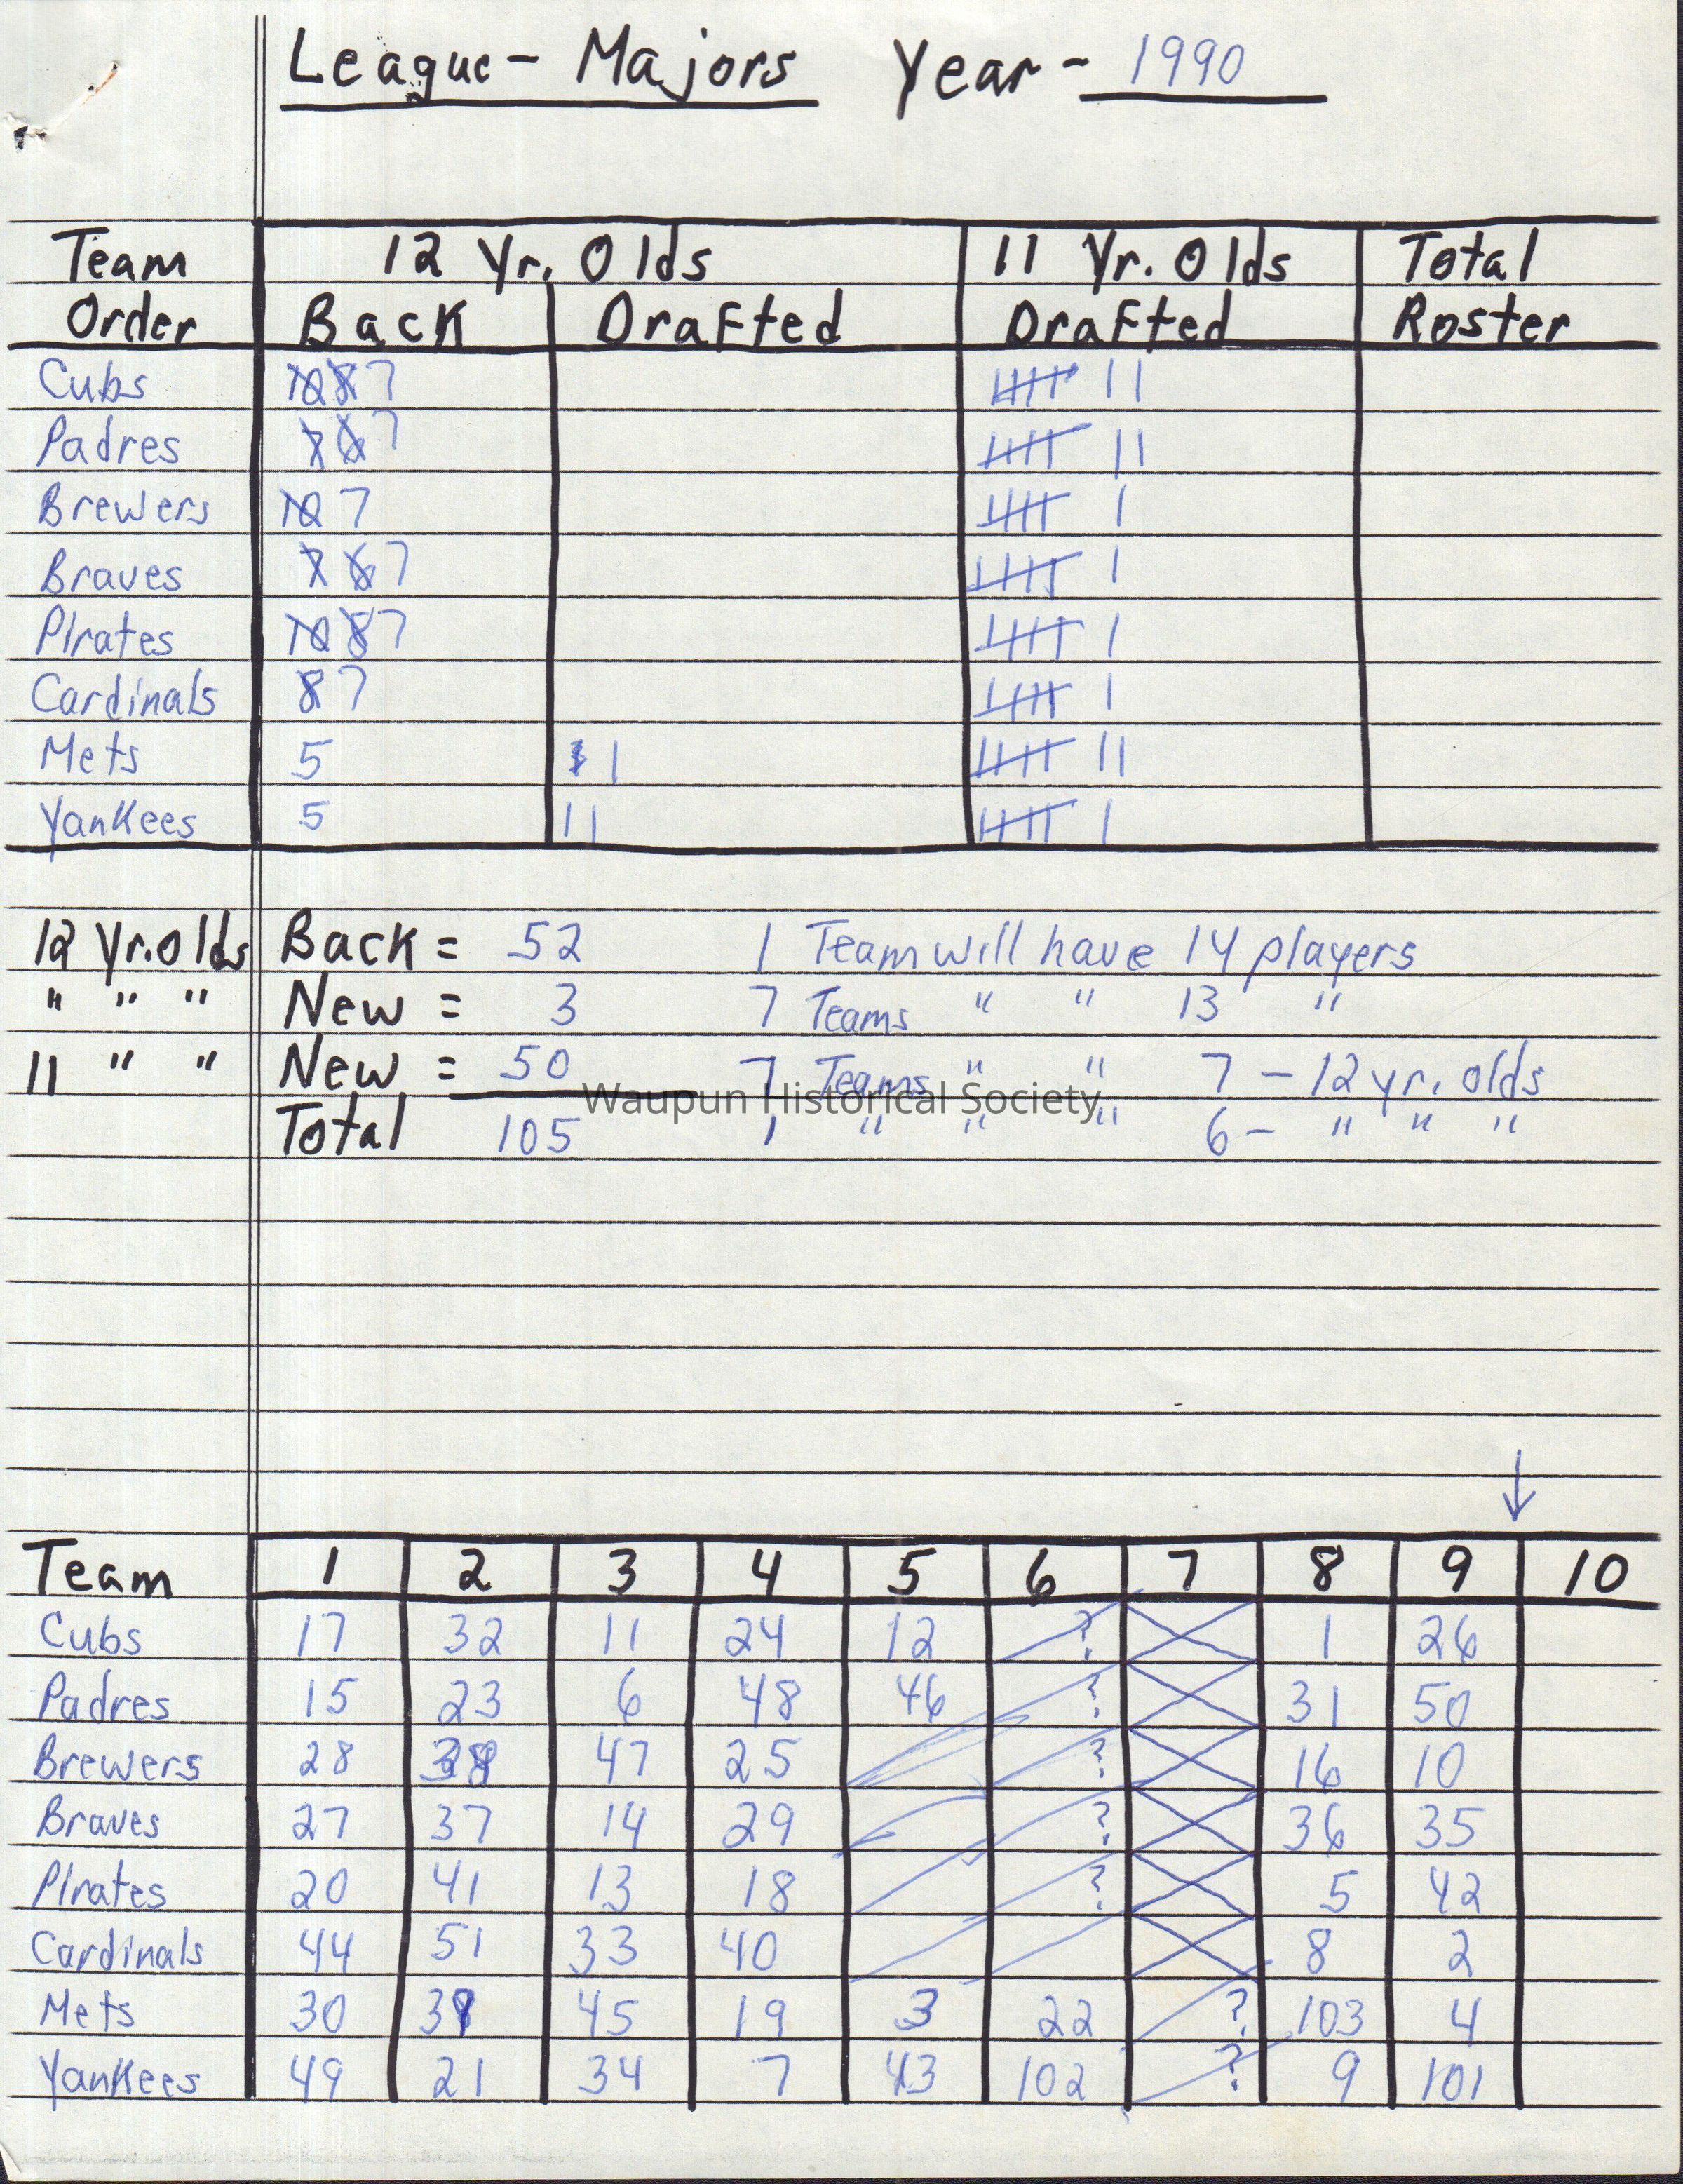 League - Majors Year - 1990
Team 12 Yr. Olds 11 Yr. Olds Total
Order Back Drafted Drafted Roster
Cubs 10 8 7 |||| ||
Padres 7 6 7 |||| ||
Brewers 10 7 |||| |
Braves 7 6 7 |||| |
Pirates 10 8 7 |||| |
Cardinals 8 7 |||| |
Mets 5 | |||| ||
Yankees 5 || |||| |
12 Yr. olds Back = 52 1 Team will have 14 players
" " " New = 3 7 Teams " " 13 "
11 " " New = 50 7 Teams " " 7 - 12 yr. olds
Waupun Historical Society
Total 105 1 " " " 6 - " " "
Team 1 2 3 4 5 6 7 8 9 10
Cubs 17 32 11 24 12 ? 1 26
Padres 15 23 6 48 46 ? 31 50
Brewers 28 47 25 ? 16 10
Braves 27 37 14 29 ? 36 35
Pirates 20 41 13 18 ? 5 42
Cardinals 44 51 33 40 8 2
Mets 30 45 19 3 22 ? 103 4
Yankees 49 21 34 7 43 102 ? 9 101